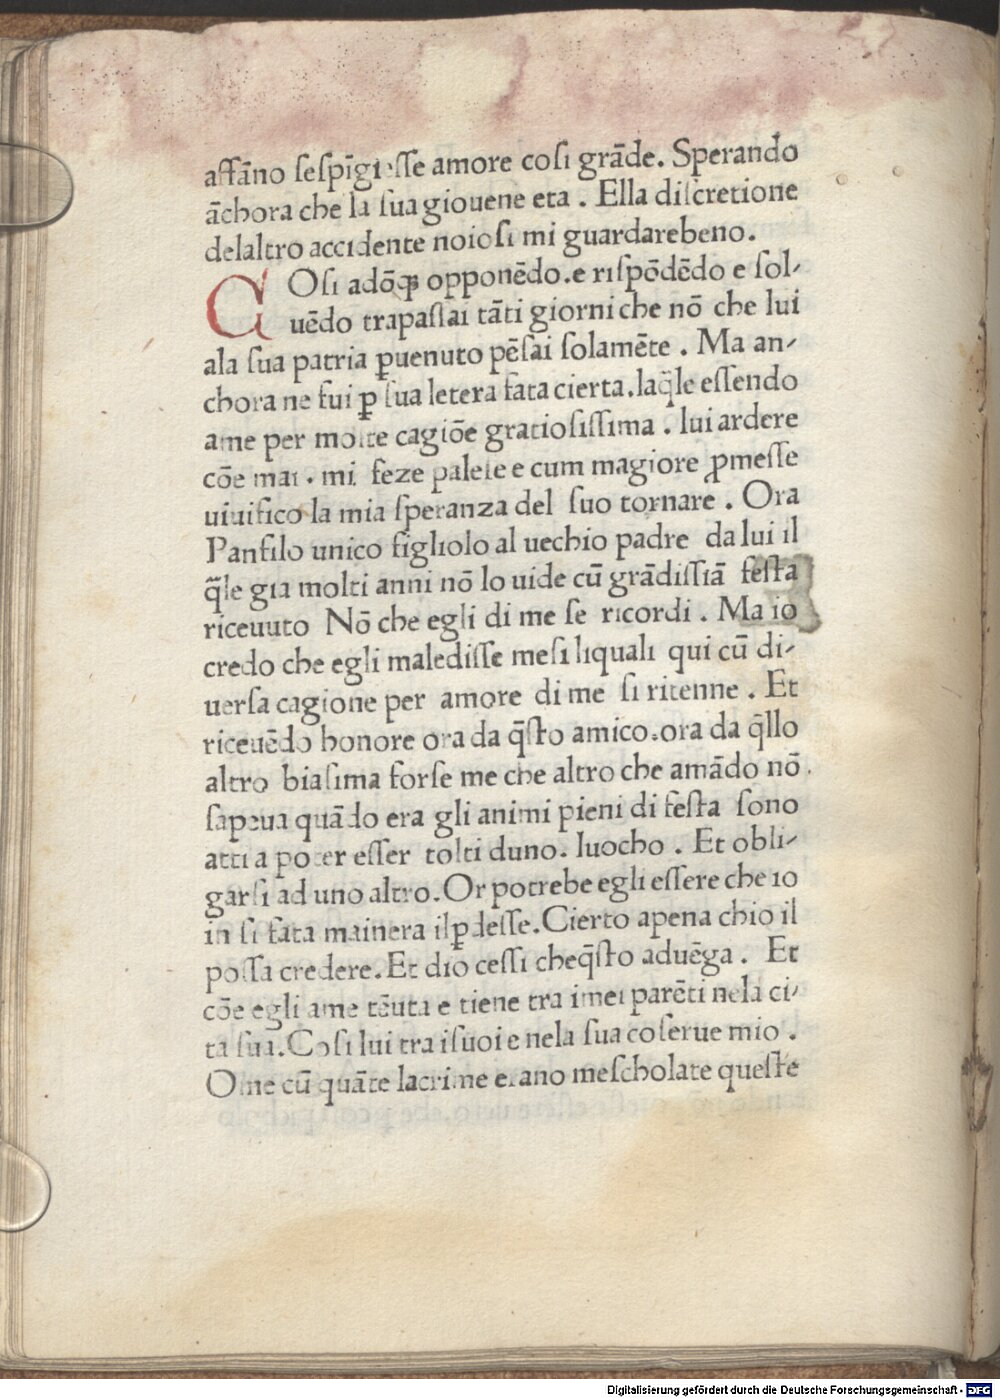 affāno ſeſpīgieſſe amore coſi grāde. Sperando
āchora che la ſua giouene eta . Ella diſcretione
delaltro accidente noioſi mi guardarebeno.
COſi adōꝙ opponēdo.e riſpōdēdo e ſol-
uēdo trapaſſai tāti giorni che nō che lui
ala ſua patria ꝑuenuto pēſai ſolamēte . Ma an-
chora ne fui ꝑ ſua letera fata cierta.laq̄le eſſendo
ame per molte cagiōe gratioſiſſima . lui ardere
cōe mai . mi feze paleſe e cum magiore ꝓmeſſe
uiuifico la mia ſperanza del ſuo tornare . Ora
Panfilo unico figliolo al uechio padre da lui il
q̄le gia molti anni nō lo uide cū grādiſſiā feſta
riceuuto Nō che egli di me ſe ricordi . Ma io
credo che egli malediſſe meſi liquali qui cū di-
uerſa cagione per amore di me ſi ritenne . Et
riceuēdo honore ora da q̄ſto amico.ora da q̄llo
altro biaſima forſe me che altro che amādo nō.
ſapeua quādo era gli animi pieni di feſta ſono
atti a poter eſſer tolti duno. luocho . Et obli-
garſi ad uno altro.Or potrebe egli eſſere che io
in ſi fata mainera il ꝑdeſſe.Cierto apena chio il
poſſa credere.Et dio ceſſi cheq̄ſto aduēga . Et
cōe egli ame tēuta e tiene tra imei parēti nela ci-
ta ſua.Coſi lui tra iſuoi e nela ſua coſerue mio .
Ome cū quāte lacrime erano meſcholate queſte
Digitalisierung gefördert durch die Deutsche Forschungsgemeinschaft - DFG